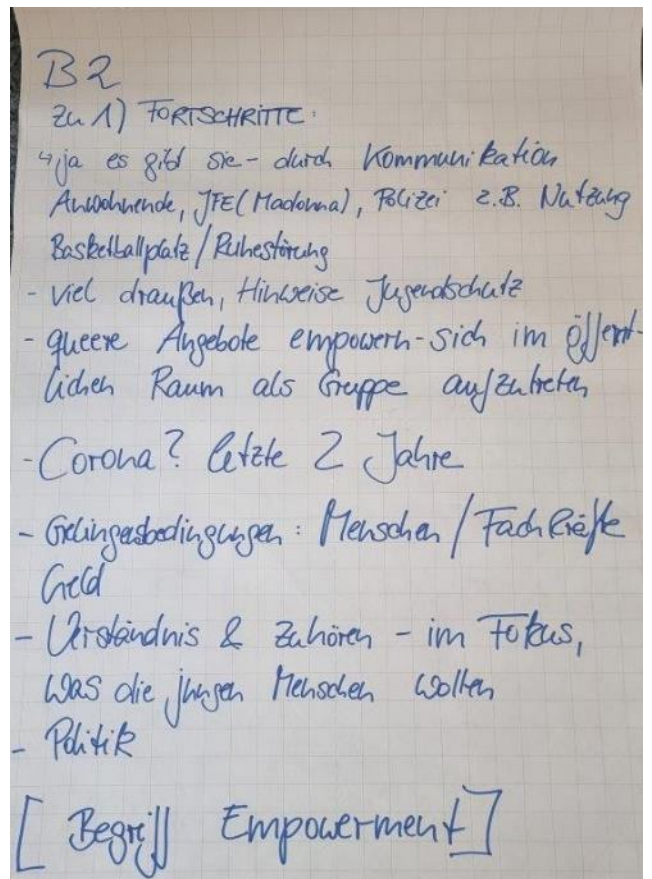 B2
Zu 1) FORTSCHRITTE:
↳ ja es gibt sie - durch Kommunikation
Anwohnende, JFE (Madonna), Polizei z.B. Nutzung
Basketballplatz / Ruhestörung
- viel draußen, Hinweise Jugendschutz
- queere Angebote empowern - sich im öffent-
lichen Raum als Gruppe aufzutreten
- Corona? letzte 2 Jahre
- Gelingensbedingungen: Menschen / Fachkräfte
Geld
- Verständnis & Zuhören - im Fokus,
was die jungen Menschen wollen
- Politik
[ Begriff Empowerment ]